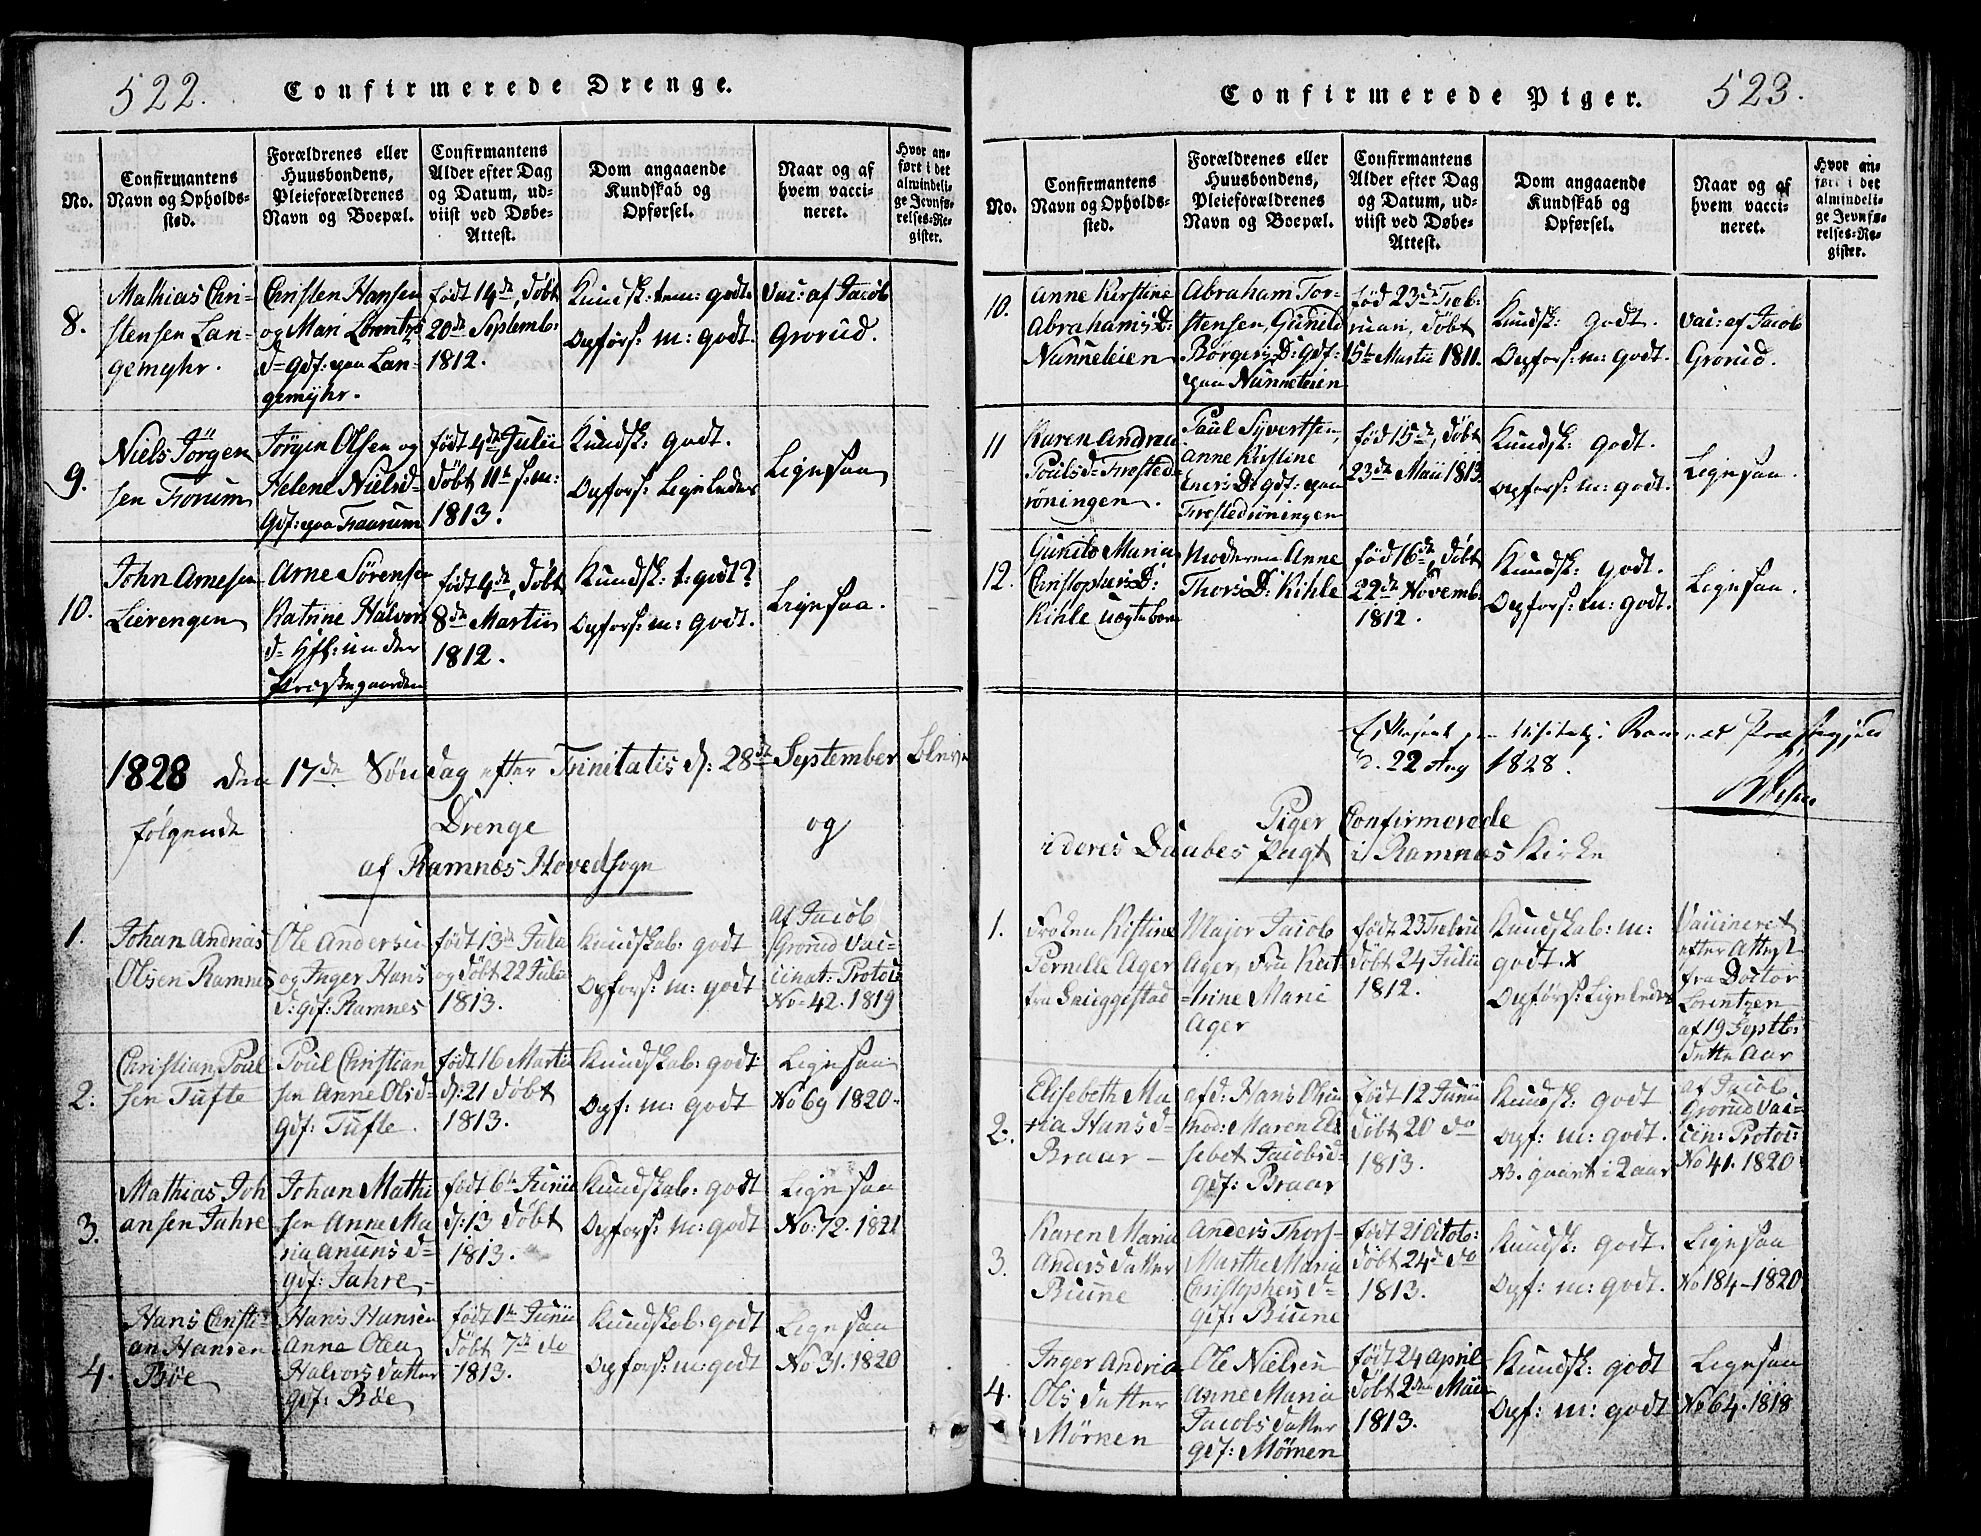 522. Confirmerede Drenge.
No.
Confirmantens
Navn og Opholds-
sted.
Forældrenes eller
Huusbondens,
Pleieforældrenes
Navn og Boepæl.
Confirmantens
Alder efter Dag
og Datum, ud-
viist ved Døbe-
Attest.
Dom angaaende
Kundskab og
Opførsel.
Naar og af
hvem vacci-
neret.
Hvor an-
ført i det
almindeli-
ge Jevnfø-
relses-Re-
gister.
8.
Mathias Chri-
stensen Lan-
gemyhr.
Christen Hansen
og Mari Lorentz
d= gdf: paa Lan-
gemyhr.
født 14de, døbt
20de Septemb:
1812.
Kundsk: tem: godt.
Opførs: m: godt.
Vac: af Jacob
Grorud.
9.
Niels Jörgen
sen Frorum
Jörgen Olsen og
Helene Nielsd=
Gdf: paa Fraarum
født 4de Julii
döbt 11te s: m:
1813.
Kundsk: godt.
Opførs: Ligeledes
Ligesaa
10.
John Arnesen
Lierengen
Arne Sörensen
Katrine Halvors
d= Hfl: under
Præstegaarden
født 4de, döbt
8de Martii
1812.
Kundsk: t: godt?
Opførs: m: godt.
Ligesaa.
1828 den 17de Söndag efter Trinitatis d: 28de September Bleve
følgende Drenge og
af Ramnes Hovedsogn
1.
Johan Andreas
Olsen Ramnes
Ole Andersen
og Inger Hans
d: gdf: Ramnes
født 13de Julii
og döbt 22 Julii
1813.
Kundskab: godt
Opførs: m: godt
Af Jacob
Grorud Vac=
cinat: Protoc:
No= 42. 1819
2.
Christian Poul
sen Tufte
Poul Christian
sen Anne Olsd=
gdf: Tufte.
født 16 Martii
d: 21 döbt
1813.
Kundskab: godt
Opf: m: godt
Ligesaa
No 69 1820.
3.
Mathias Joh
ansen Jahre
Johan Mathi
sen Anne Ma
ria Anunsd=
gdf: Jahre
født 6te Junii
d: 13 döbt
1813.
Kundskab: godt
Opførs: m: godt
Ligesaa
No: 72. 1821
4.
Hans Christi
an Hansen
Böe
Hans Hansen
Anne Olea
Halvorsdatter
gdf: Böe
født 1te Junii
döbt 7de do
1813.
Kundskab: godt
Opførs: m: godt
Ligesaa
No 31. 1820
Confirmerede Piger. 523.
No.
Confirmantens
Navn og Opholds-
sted.
Forældrenes eller
Huusbondens,
Pleieforældrenes
Navn og Boepæl.
Confirmantens
Alder efter Dag
og Datum, ud-
viist ved Døbe-
Attest.
Dom angaaende
Kundskab og
Opførsel.
Naar og af
hvem vacci-
neret.
Hvor an-
ført i det
almindeli-
ge Jevnfø-
relses-Re-
gister.
10.
Anne Kirstine
Abrahams D:
Nanneteien
Abraham Tor-
stensen, Gunild
Börgers D: gdf:
paa Nanneteien
fød 23de Feb-
ruari, döbt
15te Martii 1811.
Kundsk: godt.
Opførs: m: godt.
Vac: af Jacob
Grorud.
11
Karen Andrea
Poulsd= Firested
röningen.
Paul Syvertsen,
Anne Kirstine
Eners D: gdf: paa
Firestedröningen
fød 15de, döbt
23de Maii 1813
Kundsk: godt.
Opførs: m: godt.
Ligesaa.
12.
Gunild Maria
Christophers D:
Kihle uægte barn
Moderen Anne
Thors D: Kihle
fød 16de, döbt
22de Novemb.
1812.
Kundsk: godt.
Opførs: m: godt.
Ligesaa.
d. 22 Aug 1828.
Piger Confirmerede
i deres Daabes Pagt i Ramnes Kirke
1.
Frøken Kistine
Pernille Ager
fra Sniggestad
Major Jacob
Ager, Fru Kat
=trine Marie
Ager
født 23 Febru
döbt 24 Julii
1812.
Kundskab: m:
godt. x
Opførs: Ligeledes
Vaccineret
efter Attest
fra Doctor
Lorentzen
af 19 Septb:
dette Aar
2.
Elisebeth Ma
ria Hansd=
Braar
afd: Hans Olsen
mod: Maren Eli
sebet Jacobsd=
gdf: Braar
født 12 Junii
döbt 20 do
1813.
Kundsk: godt
Opf: m: godt.
NB. gaaet i 2 aar
af Jacob
Grorud Vac=
cin: Protoc:
No 41. 1820
3.
Karen Maria
Anders datter
Biune
Anders Thors-
Marthe Maria
Christophers d=
gdf: Biune
født 21 Octob:
döbt 24d do
1813.
Kundsk: godt.
Opf: m: godt.
Ligesaa
No 184-1820
4.
Inger Andria
Ols datter
Mörken
Ole Nielsen
Anne Maria
Jacobs datter
gdf: Mörken
født 24 April
döbt 2den Maii
1813.
Kundsk: godt
Opf: m: godt
Ligesaa
No 64. 1818